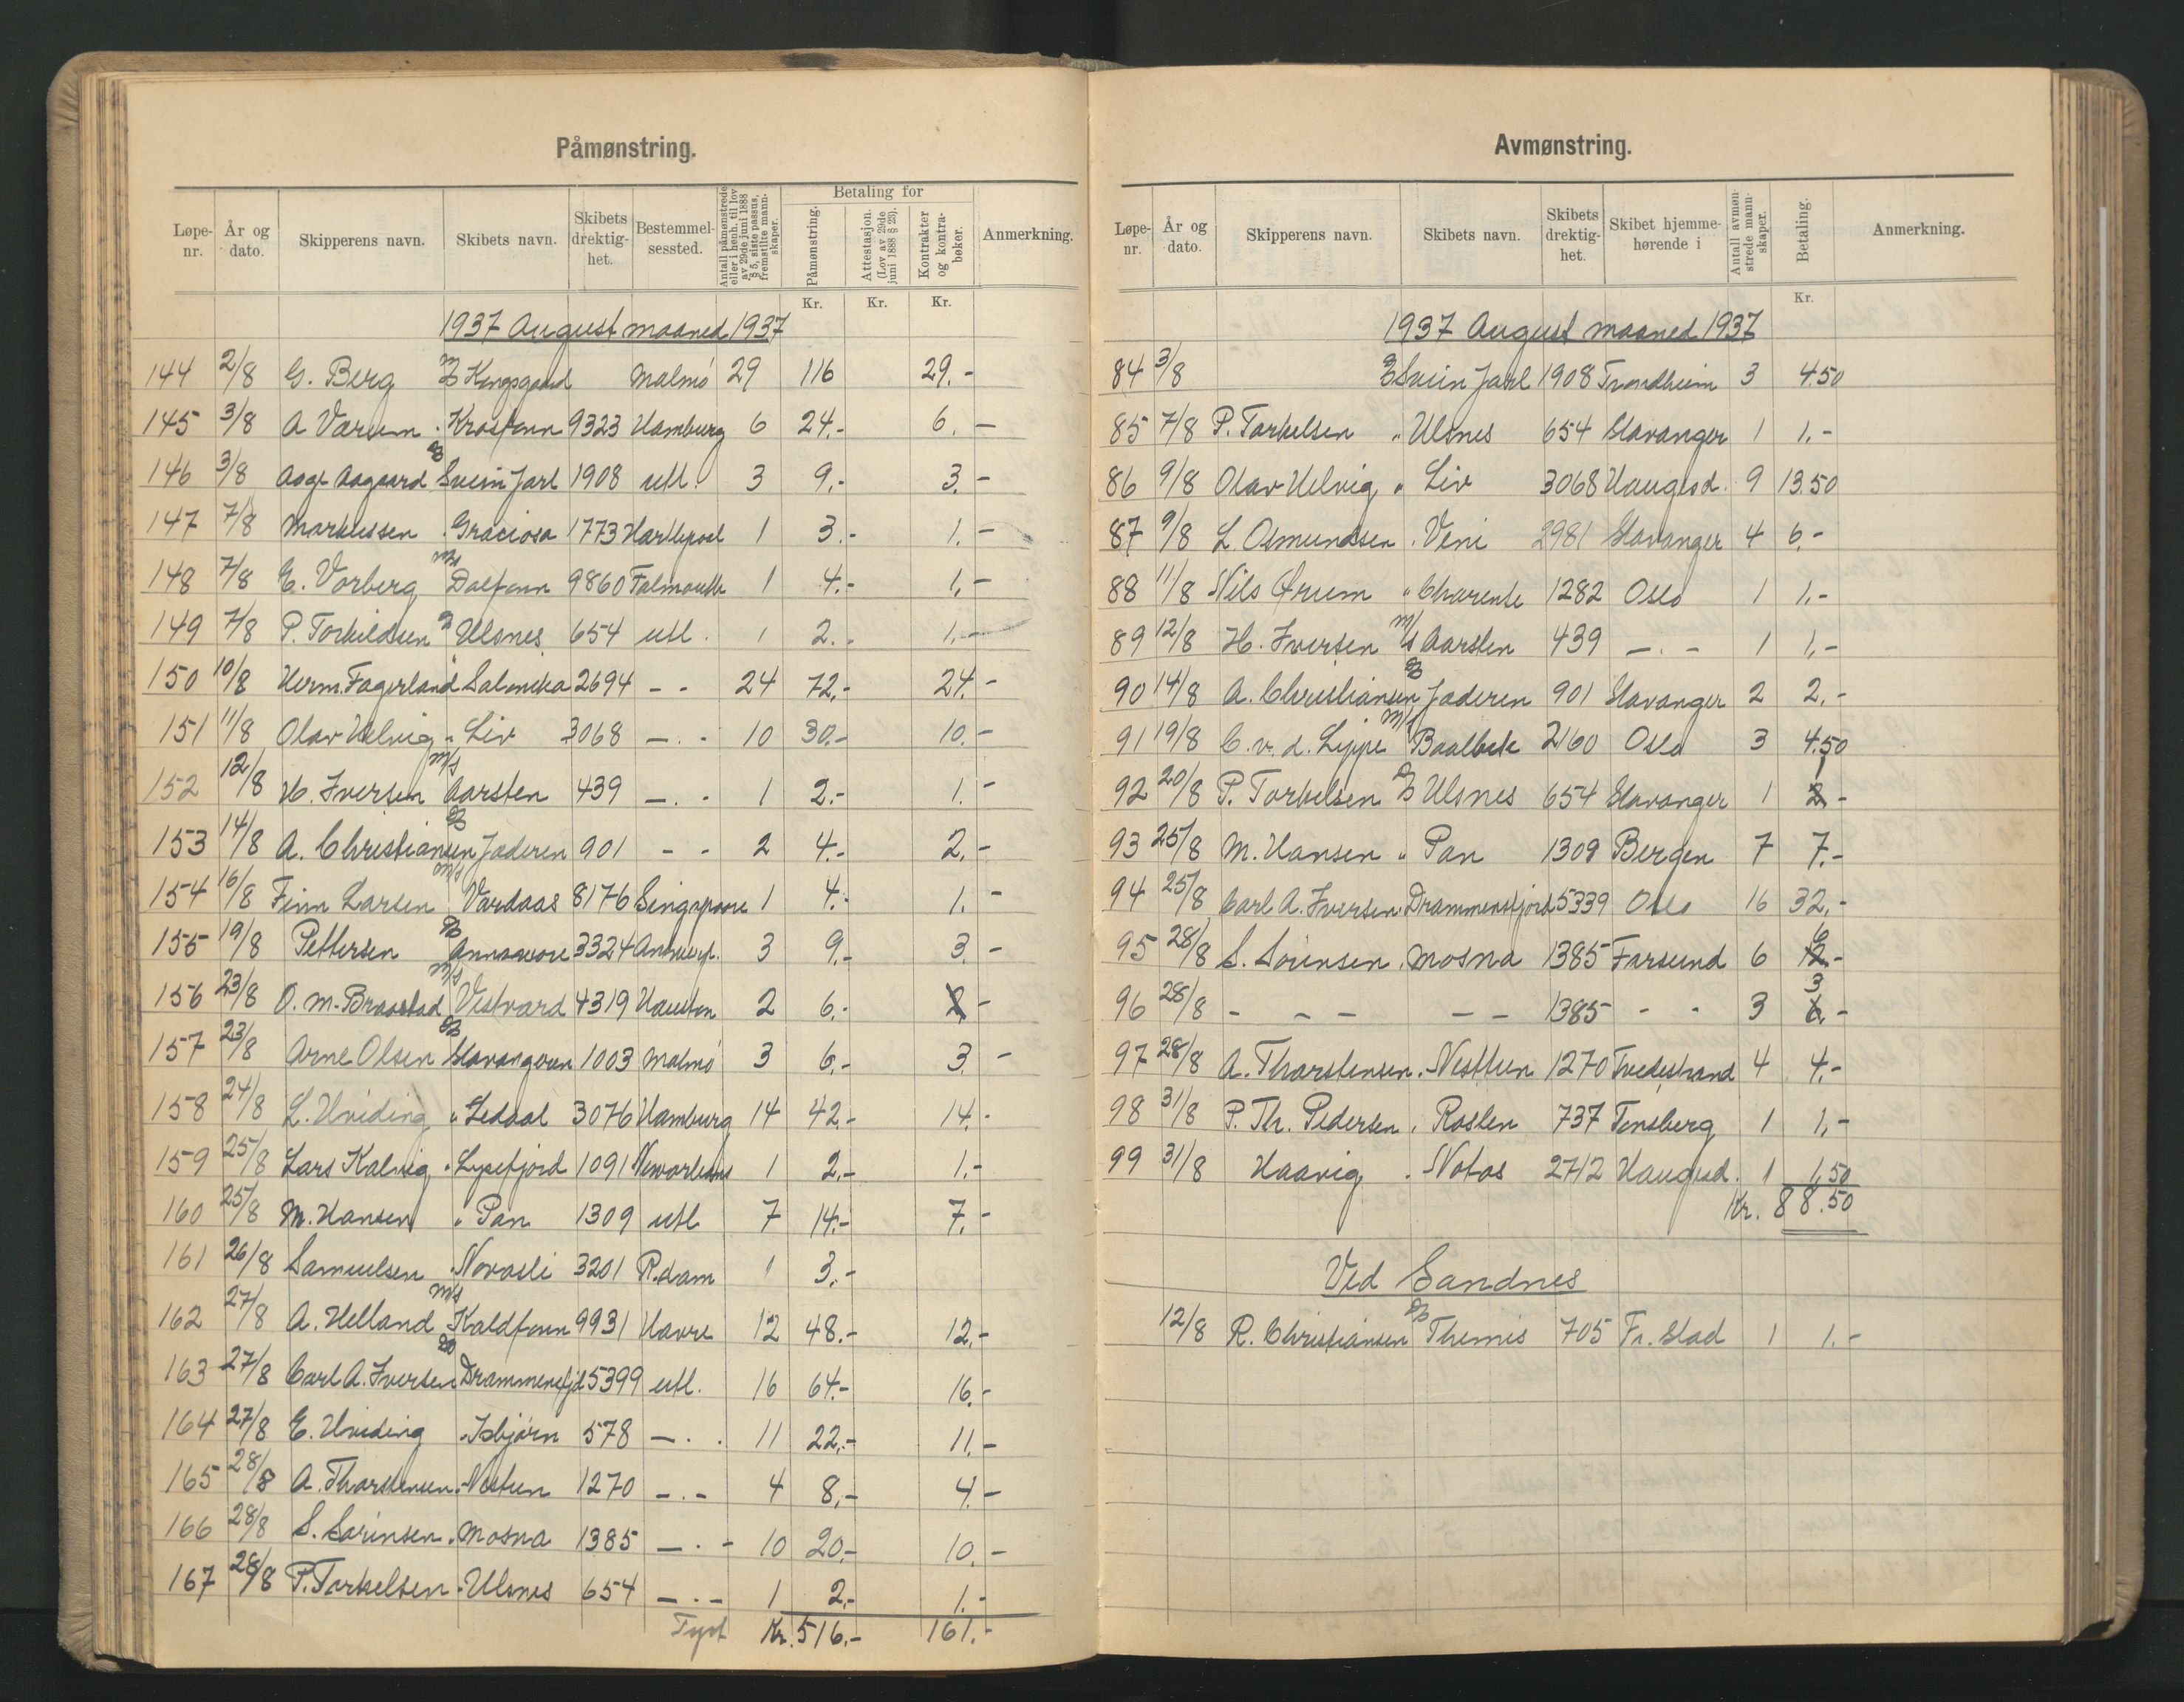 Påmønstring.
Løpe-nr. År og dato. Skipperens navn. Skibets navn. Skibets drektig-het. Bestemmel-sessted. Antall påmønstrede eller i henh. til lov av 29de juni 1888 § 5, siste passus, fremstilte mann-skaper. Betaling for Påmønstring. Attestasjon. (Lov av 29de juni 1888 § 23). Kontrakter og kontra-bøker. Anmerkning.
Kr. Kr. Kr.
1937 August maaned 1937
144 2/8 G. Berg Kongsgaard Malmö 29 116 29.-
145 3/8 A Varum Krosfonn 9323 Hamburg 6 24.- 6.-
146 3/8 Aage Aagaard Svein Jarl 1908 utl. 3 9.- 3.-
147 7/8 Markussen Graciosa 1773 Hartlepool 1 3.- 1.-
148 7/8 E. Vorberg m/s Dalfonn 9860 Falmouth 1 4.- 1.-
149 7/8 P. Torkildsen Ulsnes 654 utl. 1 2.- 1.-
150 10/8 Herm. Fagerland Salonika 2694 - - 24 72.- 24.-
151 11/8 Olav Helvig " Liv 3068 -.- 10 30.- 10.-
152 12/8 H. Iversen m/s Aarsten 439 -.- 1 2.- 1.-
153 14/8 A. Christiansen Jaderen 901 - - 2 4.- 2.-
154 16/8 Finn Larsen m/s Vardaas 8176 Singapoore 1 4.- 1.-
155 19/8 Pettersen 3324 3 9.- 3.-
156 23/8 O. M. Braastad m/s Vestvard 4319 Houston 2 6.- 2.-
157 23/8 Arne Olsen Stavangeren 1003 Malmö 3 6.- 3.-
158 24/8 L. Hviding " Ledaal 3076 Hamburg 14 42.- 14.-
159 25/8 Lars Kalvig " Lysefjord 1091 Neworleans 1 2.- 1.-
160 25/8 M. Hansen " Pan 1309 utl 7 14.- 7.-
161 26/8 Samuelsen Novasli 3201 R.dam 1 3.-
162 27/8 A. Helland m/s Kaldfonn 9931 Havre 12 48.- 12.-
163 27/8 Carl A. Iversen Drammensfjd 5399 utl. 16 64.- 16.-
164 27/8 E. Hviding " Isbjørn 578 -.. 11 22.- 11.-
165 28/8 A. Thorstensen Nesttun 1270 -.- 4 8.- 4.-
166 28/8 S. Sörensen Mosna 1385 -.- 10 20.- 10.-
167 28/8 P. Torkelsen Ulsnes 654 -.- 1 2.- 1.-
Kr. 516.- 161.-
Avmønstring.
Løpe-nr. År og dato. Skipperens navn. Skibets navn. Skibets drektig-het. Skibet hjemme-hørende i Antall avmøn-strede mann-skaper. Betaling. Anmerkning.
Kr.
1937 August maaned 1937
84 3/8 Svein Jarl 1908 Trondheim 3 4.50
85 7/8 P. Torkelsen " Ulsnes 654 Stavanger 1 1.-
86 9/8 Olav Helvig " Liv 3068 Haugesd. 9 13.50
87 9/8 L. Osmundsen Veni 2981 Stavanger 4 6.-
88 11/8 Nils Ørum " Charente 1282 Oslo 1 1.-
89 12/8 H. Iversen m/s Aarsten 439 -.- 1 1.-
90 14/8 A. Christiansen Jaderen 901 Stavanger 2 2.-
91 19/8 C. v. d. Lippe m/s Baalbek 2160 Oslo 3 4.50
92 20/8 P. Torkelsen Ulsnes 654 Stavanger 1 2 1 -
93 25/8 M. Hansen " Pan 1309 Bergen 7 7.-
94 25/8 Carl A. Iversen Drammensfjord 5339 Oslo 16 32.-
95 28/8 S. Sörensen Mosna 1385 Farsund 6 12 6 -
96 28/8 - - - - - 1385 - - 3 6 3 -
97 28/8 A. Thorstensen Nesttun 1270 Tvedestrand 4 4.-
98 31/8 P. Th. Pedersen Rosten 737 Tønsberg 1 1.-
99 31/8 Haavig Notos 2712 Haugesd. 1 1,50
Kr. 88.50
Ved Sandnes
12/8 R. Christiansen Themis 705 Fr. Stad 1 1.-